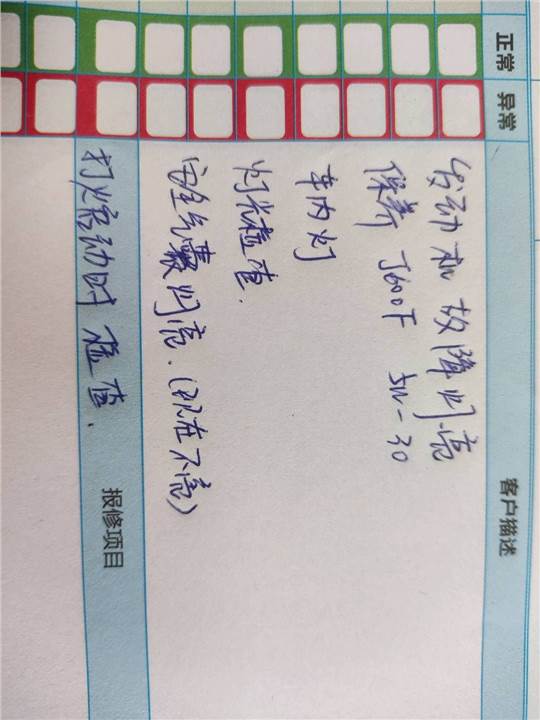 正常 异常 客户描述
发动机故障灯亮
保养 J600F 5W-30
车内灯
灯光检查.
安全气囊灯亮.(现在不亮)
打启动时 检查.
报修项目